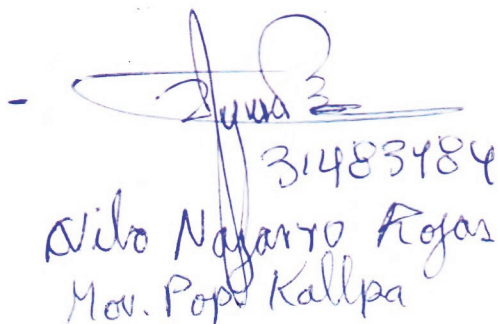 -
31483484
Nilo Najarro Rojas
Mov. Pop. Kallpa